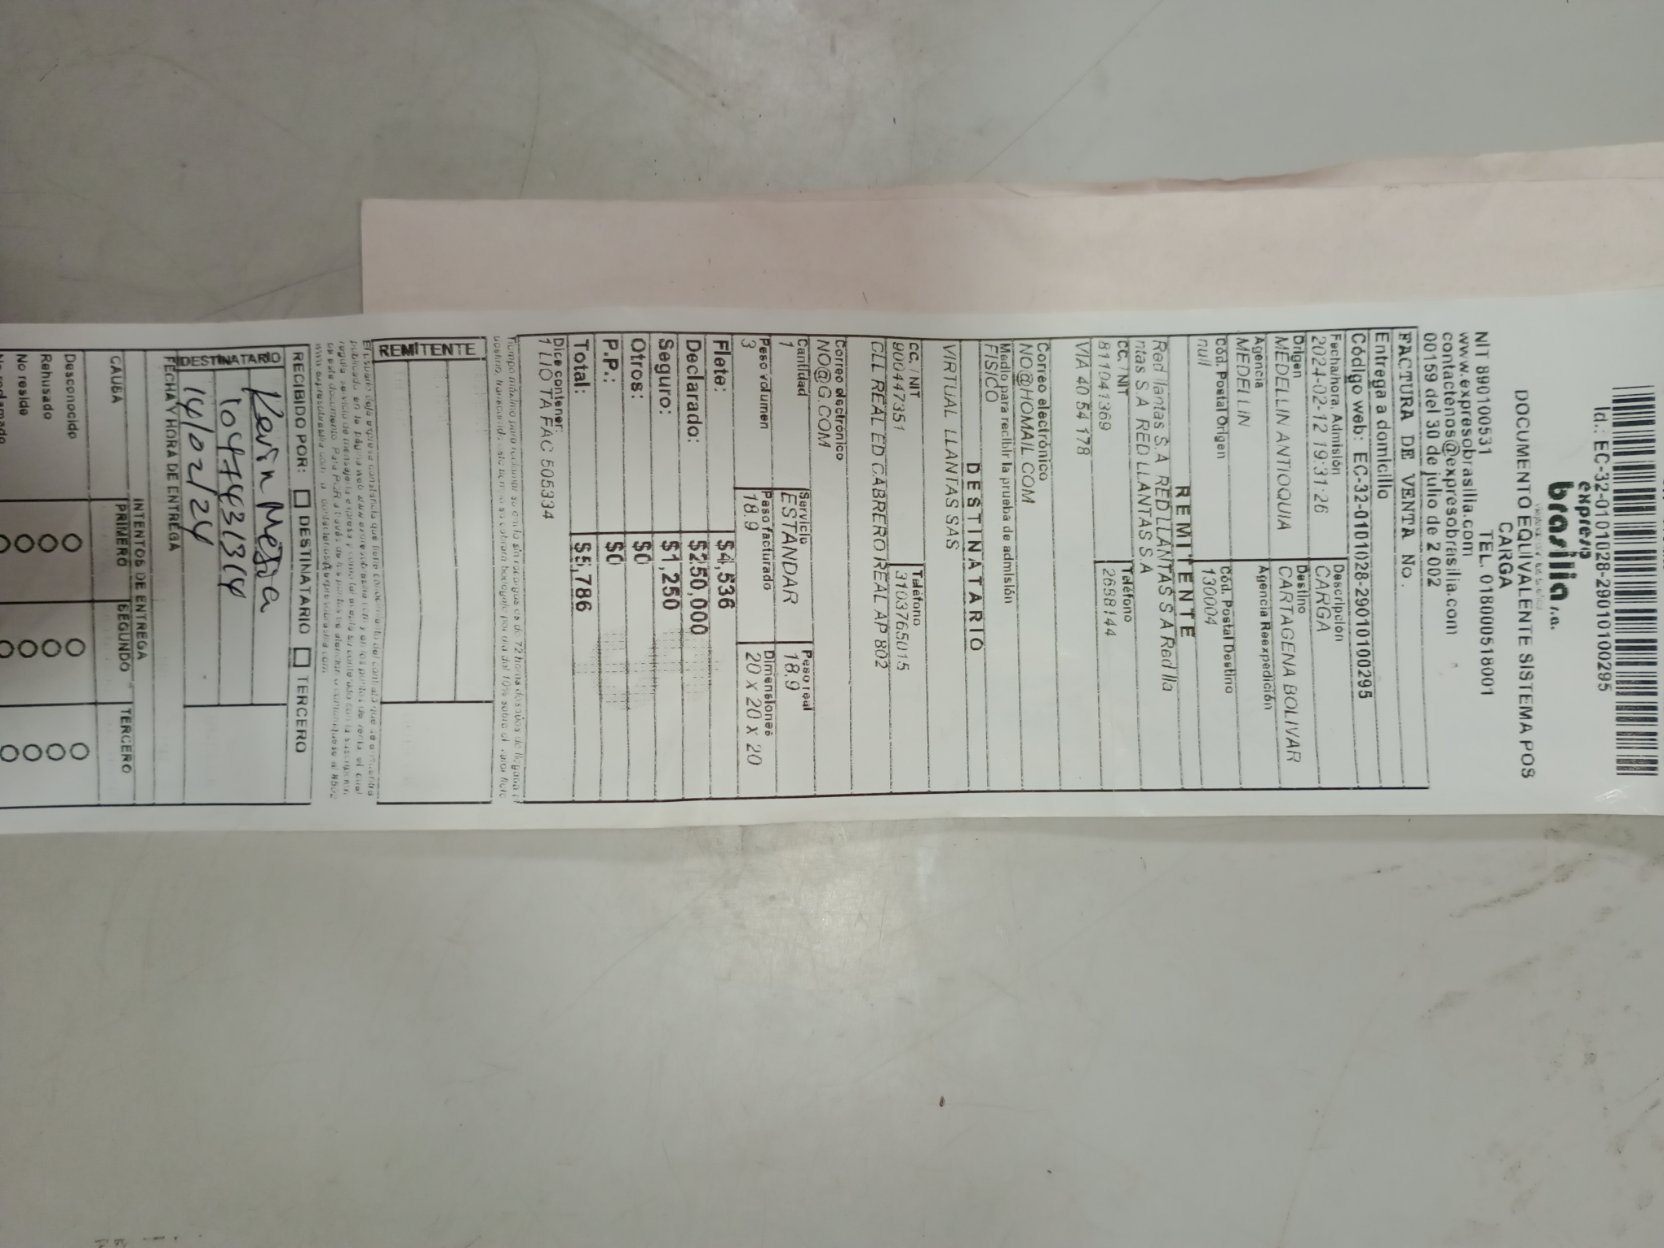 Id.: EC-32-0101028-290101100295
expreso
brasilia s.a.
CARGA
DOCUMENTO EQUIVALENTE SISTEMA POS
NIT 890100531 TEL. 018000518001
www.expresobrasilia.com
contactenos@expresobrasilia.com
00159 del 30 de julio de 2002
FACTURA DE VENTA No.
Entrega a domicilio
Código web: EC-32-0101028-290101100295
Fecha/hora, Admisión Descripción
2024-02-12 19:31:26 CARGA
Origen Destino
MEDELLIN ANTIOQUIA CARTAGENA BOLIVAR
Agencia Agencia Reexpedición
MEDELLIN
Cód. Postal Origen Cód. Postal Destino
null 130004
REMITENTE
Red llantas S.A RED LLANTAS S A Red lla
ntas S A RED LLANTAS S.A
CC. / NIT Teléfono
811041369 2658144
VIA 40 54 178
Correo electrónico
NO@HOMAIL.COM
Medio para recibir la prueba de admisión
FISICO
DESTINATARIO
VIRTUAL LLANTAS SAS
CC. / NIT Teléfono
900447351 3103765015
CLL REAL ED CABRERO REAL AP 802
Correo electrónico
NO@G.COM
Cantidad Servicio Peso real
1 ESTANDAR 18.9
Peso volumen Peso facturado Dimensiones
3 18.9 20 X 20 X 20
Flete: $4,536
Declarado: $250,000
Seguro: $1,250
Otros: $0
P.P.: $0
Total: $5,786
Dice contener:
1 LIO TA FAC 505334
REMITENTE
RECIBIDO POR: DESTINATARIO TERCERO
DESTINATARIO
Kevin Mesa
1047431314
14/02/24
FECHA Y HORA DE ENTREGA
INTENTOS DE ENTREGA
CAUSA PRIMERO SEGUNDO TERCERO
Desconocido
Rehusado
No reside